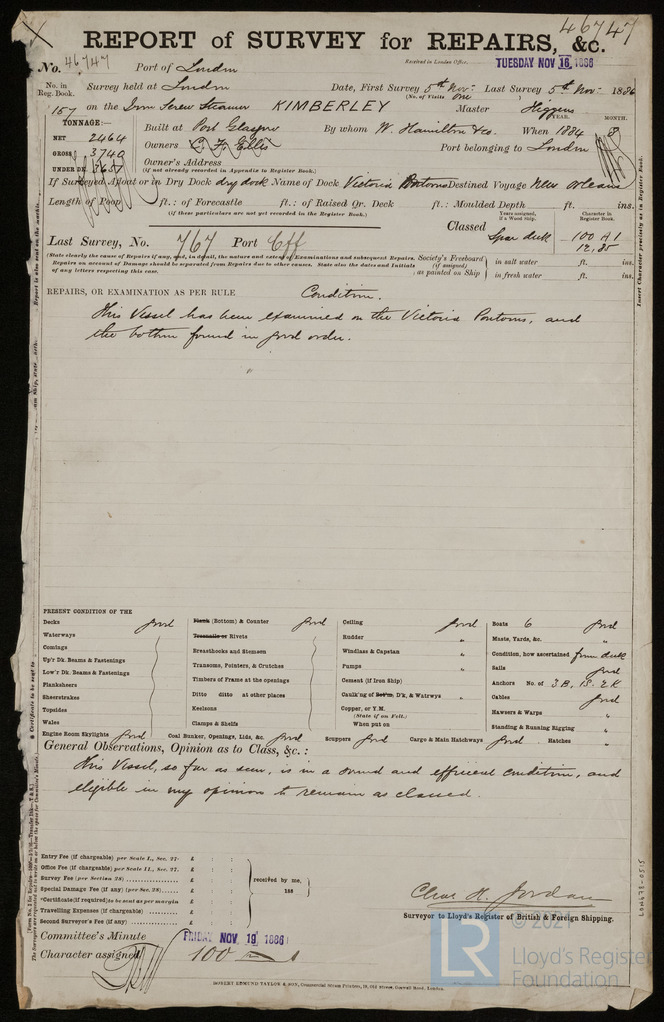 46747
REPORT of SURVEY for REPAIRS, &c.
No. 46747 Port of London Received in London Office. TUESDAY NOV 16 1886
No. in Reg. Book. Survey held at London Date, First Survey 5th Nov: Last Survey 5th Nov: 1886
(No. of Visits One)
157 on the Iron Screw Steamer KIMBERLEY Master Higgens
TONNAGE:— YEAR. MONTH.
NET 2464 Built at Port Glasgow By whom W. Hamilton & Co. When 1884 8
GROSS 3740 Owners C. F. Ellis Port belonging to London
UNDER DK. 3657 Owner's Address
(if not already recorded in Appendix to Register Book.)
If Surveyed Afloat or in Dry Dock dry dock Name of Dock Victoria Pontoons Destined Voyage New Orleans
Length of Poop ft.: of Forecastle ft.: of Raised Qr. Deck ft.: Moulded Depth ft. ins.
(if these particulars are not yet recorded in the Register Book.)
Years assigned, if a Wood Ship. Character in Register Book.
Classed Spar deck 100 A1
12,85
Last Survey, No. 767 Port Cff
(State clearly the cause of Repairs if any, and, in detail, the nature and extent of Examinations and subsequent Repairs.
Repairs on account of Damage should be separated from Repairs due to other causes. State also the dates and Initials
of any letters respecting this case.
Society's Freeboard (if assigned) as painted on Ship
in salt water ft. ins.
in fresh water ft. ins.
Insert Character precisely as in Register Book.
REPAIRS, OR EXAMINATION AS PER RULE Condition.
This Vessel has been examined on the Victoria Pontoons, and
the bottom found in good order.
PRESENT CONDITION OF THE
Decks good
Waterways
Comings
Up'r Dk. Beams & Fastenings
Low'r Dk. Beams & Fastenings
Planksheers
Sheerstrakes
Topsides
Wales
Engine Room Skylights good
Plank (Bottom) & Counter good
Treenails or Rivets
Breasthooks and Stemson
Transoms, Pointers, & Crutches
Timbers of Frame at the openings
Ditto ditto at other places
Keelsons
Clamps & Shelfs
Coal Bunker, Openings, Lids, &c. good
Ceiling good
Rudder "
Windlass & Capstan "
Pumps "
Cement (if Iron Ship) "
Caulk'ng of Bot'm D'k, & Watrwys "
Copper, or Y.M.
(State if on Felt.)
When put on
Scuppers good Cargo & Main Hatchways good Hatches "
Boats 6 good
Masts, Yards, &c. "
Condition, how ascertained from deck
Sails good
Anchors No. of 3B, 1S. 2K
Cables good
Hawsers & Warps "
Standing & Running Rigging "
General Observations, Opinion as to Class, &c.:
This Vessel, so far as seen, is in a sound and efficient condition, and
eligible in my opinion to remain as classed.
Entry Fee (if chargeable) per Scale I., Sec. 27. £ : :
Office Fee (if chargeable) per Scale II., Sec. 27. £ : :
Survey Fee (per Section 28) £ : :
Special Damage Fee (if any) (per Sec. 28) £ : :
*Certificate (if required) to be sent as per margin £ : :
Travelling Expenses (if chargeable) £ : :
Second Surveyor's Fee (if any) £ : :
received by me,
188
Chas. H. Jordan
Surveyor to Lloyd's Register of British & Foreign Shipping.
Committee's Minute FRIDAY NOV 19 1886
Character assigned 100
ROBERT EDMUND TAYLOR & SON, Commercial Steam Printers, 19, Old Street, Goswell Road, London.
LON478-0515
LR
© 2021
Lloyd's Register
Foundation